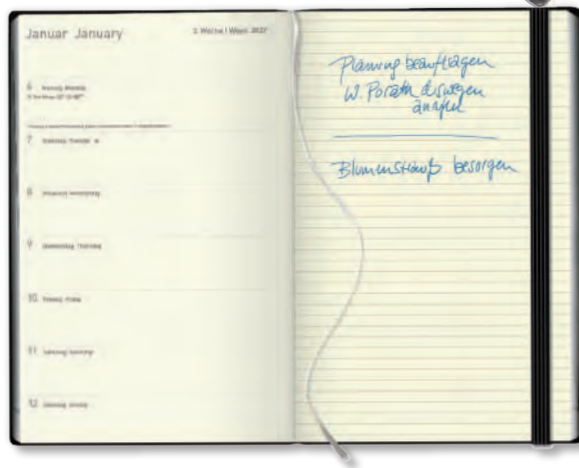 Januar January
2. Woche | Week
6 Montag Monday
7 Dienstag Tuesday
8 Mittwoch Wednesday
9 Donnerstag Thursday
10 Freitag Friday
11 Samstag Saturday
12 Sonntag Sunday
Planung beauftragen
W. Porath deswegen
anrufen
Blumenstrauß besorgen